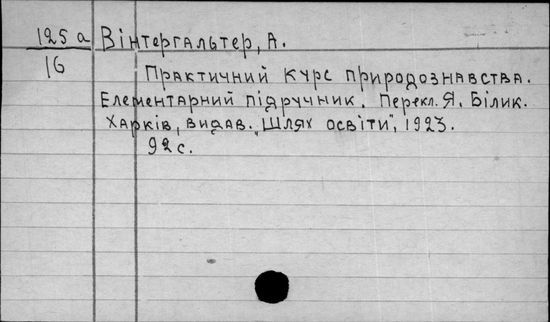 125 а Вінтергальтер, А.
16
Практичний курс природознавства.
Елементарний підручник. Перекл. Я. Білик.
Харків, видав. „Шлях освіти", 1923.
92 с.